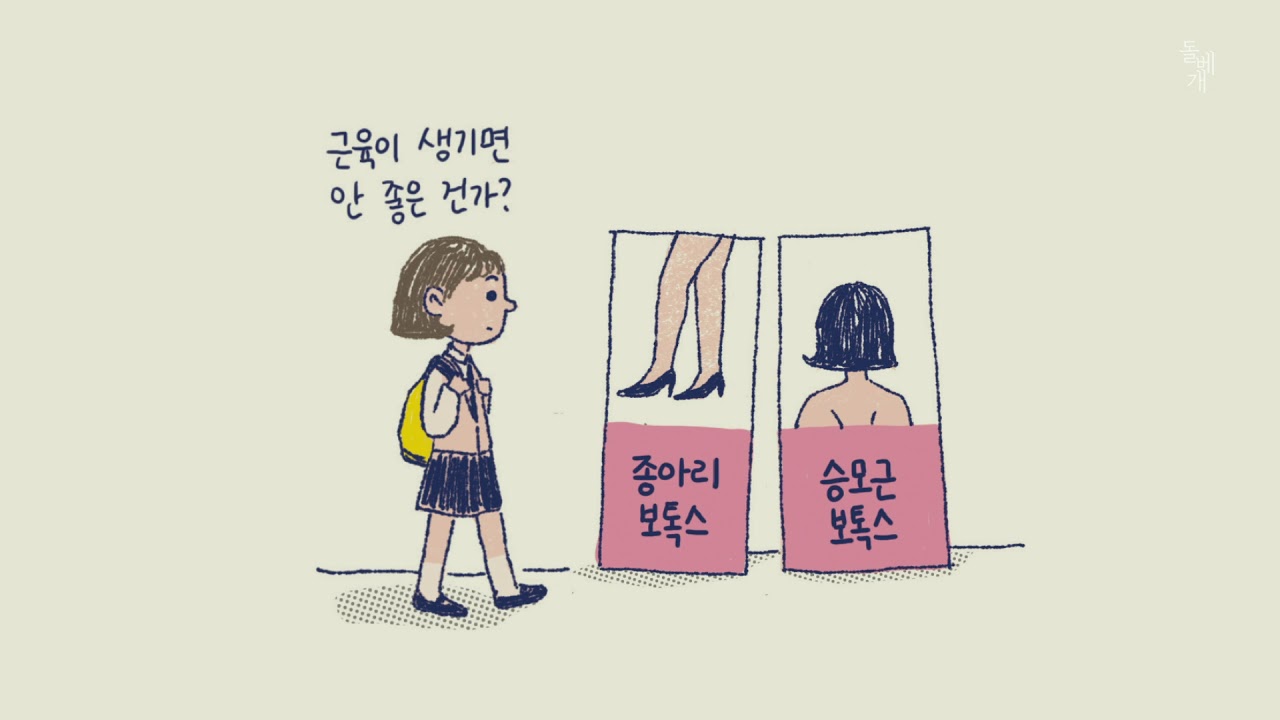 돌베개
근육이 생기면
안 좋은 건가?
종아리
보톡스
승모근
보톡스